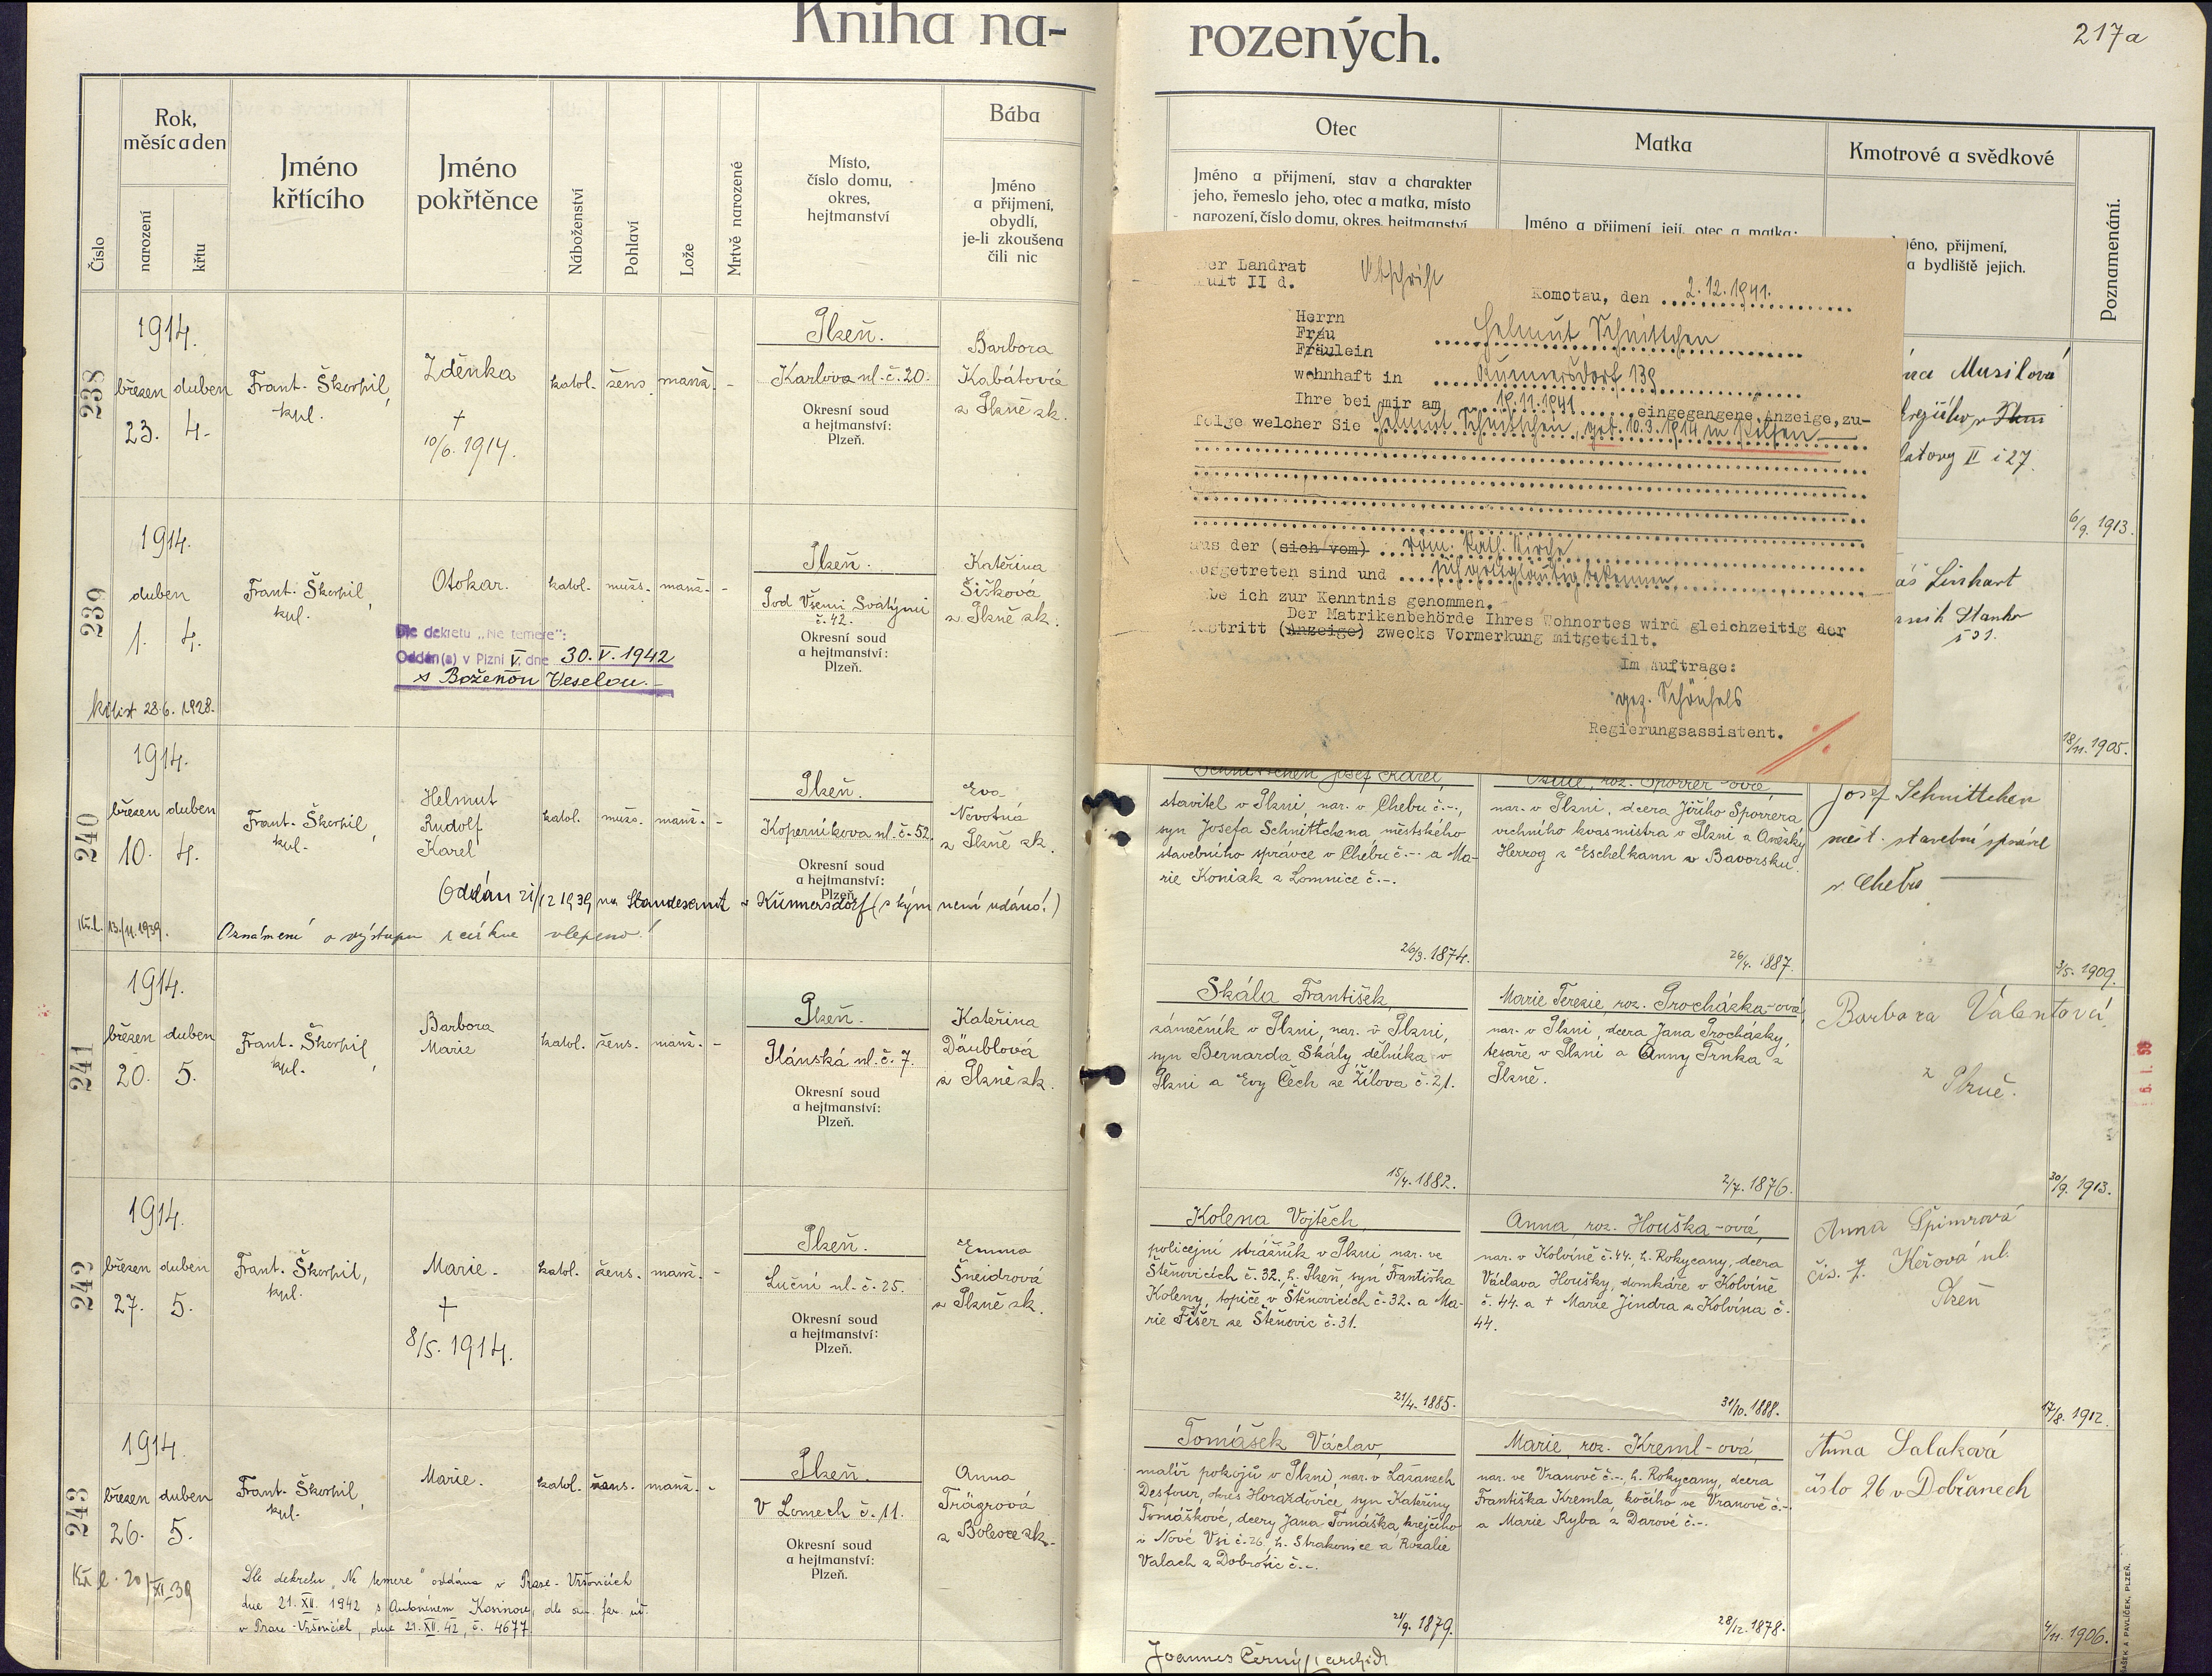 Kniha na-
rozených.
217a
Číslo
Rok,
měsíc a den
narození
křtu
Jméno
křtícího
Jméno
pokřtěnce
Náboženství
Pohlaví
Lože
Mrtvě narozené
Místo,
číslo domu,
okres,
hejtmanství
Bába
Jméno
a přijmení,
obydlí,
je-li zkoušena
čili nic
Otec
Jméno a přijmení, stav a charakter
jeho, řemeslo jeho, otec a matka, místo
narození, číslo domu, okres, hejtmanství
Matka
Jméno a přijmení její, otec a matka;
Kmotrové a svědkové
éno, přijmení,
a bydliště jejich.
Poznamenání.
238
1914.
březen duben
23. 4.
Frant. Škorpil,
kpl.
Zděnka
†
10/6. 1914.
katol. žens. manž. -
Plzeň.
Karlova ul. č. 20.
Okresní soud
a hejtmanství:
Plzeň.
Barbora
Kabátová
z Plzně zk.
Musilová
II č 27.
6/9. 1913.
Der Landrat
Abschrift
Kult II d.
Komotau, den 2.12.1941.
Herrn
Frau
Fräulein
Helmut Schnittchen
wohnhaft in Kunnersdorf 139
Ihre bei mir am 19.11.1941 eingegangene Anzeige, zu-
folge welcher Sie Helmut Schnittchen, geb. 10.3.1914 in Pilsen
aus der (sich vom) röm. kath. Kirche
ausgetreten sind und sich gottgläubig bekennen
habe ich zur Kenntnis genommen.
Der Matrikenbehörde Ihres Wohnortes wird gleichzeitig der
Austritt (Anzeige) zwecks Vormerkung mitgeteilt.
Im Auftrage:
gez. Schönfels
Regierungsassistent.
239
1914.
duben
1. 4.
kř. list 28.6. 1928.
Frant. Škorpil,
kpl.
Otokar.
Dle dekretu „Ne temere":
Oddán(a) v Plzni V, dne 30. V. 1942
s Boženou Veselou.
katol. mužs. manž. -
Plzeň.
Pod Všemi Svatými
č. 42.
Okresní soud
a hejtmanství:
Plzeň.
Kateřina
Šišková
z Plzně zk.
Linhart
18/11. 1905.
240
1914.
březen duben
10. 4.
Kř. l. 13./11. 1939.
Frant. Škorpil,
kpl.
Helmut
Rudolf
Karel
katol. mužs. manž. -
Plzeň.
Koperníkova ul. č. 52.
Okresní soud
a hejtmanství:
Plzeň.
Eva
Novotná
z Plzně zk.
Oddán 21/12 1939 na Standesamt v Künnersdorf (s kým není udáno!)
Oznámení o výstupu z církve vlepeno!
Schnittchen Josef Karel,
stavitel v Plzni, nar. v Chebu č.-.,
syn Josefa Schnittchena městského
stavebního správce v Chebu č.-. a Ma-
rie Koniak z Lomnice č.-.
26/3. 1874.
roz. Sporrer-ová,
nar. v Plzni, dcera Jiřího Sporrera
vrchního kvasmistra v Plzni a Anežky
Herzog z Eschelkamm v Bavorsku.
26/4. 1887.
Josef Schnittchen
měst. stavební správce
v Chebu
3/5. 1909.
241
1914.
březen duben
20. 5.
Frant. Škorpil,
kpl.
Barbora
Marie
katol. žens. manž. -
Plzeň.
Plánská ul. č. 7.
Okresní soud
a hejtmanství:
Plzeň.
Kateřina
Däublová
z Plzně zk.
Skála František,
zámečník v Plzni, nar. v Plzni,
syn Bernarda Skály, dělníka v
Plzni a Evy Čech ze Žilova č. 21.
15/4. 1882.
Marie Terezie, roz. Procházka-ová,
nar. v Plzni, dcera Jana Procházky,
tesaře v Plzni a Anny Trnka z
Plzně.
2/7. 1876.
Barbora Valentová
z Plzně.
30/9. 1913.
242
1914.
březen duben
27. 5.
Frant. Škorpil,
kpl.
Marie.
†
8/5. 1914.
katol. žens. manž. -
Plzeň.
Luční ul. č. 25.
Okresní soud
a hejtmanství:
Plzeň.
Emma
Šneidrová
z Plzně zk.
Kolena Vojtěch,
policejní strážník v Plzni nar. ve
Štěnovicích č. 32, h. Plzeň, syn Františka
Koleny, topiče v Štěnovicích č. 32. a Ma-
rie Fišer ze Štěnovic č. 31.
21/4. 1885.
Anna, roz. Houška-ová,
nar. v Kolvíně č. 44, h. Rokycany, dcera
Václava Houšky, domkáře v Kolvíně
č. 44. a † Marie Jindra z Kolvína č.
44.
31/10. 1888.
Anna Špimrová
čís. 7. Keřová ul.
Plzeň
17/8. 1912.
243
1914.
březen duben
26. 5.
Kř. l. 20/XI. 39
Frant. Škorpil,
kpl.
Marie.
katol. žens. manž. -
Plzeň.
V Lomech č. 11.
Okresní soud
a hejtmanství:
Plzeň.
Anna
Trägrová
z Bolevce zk.
Dle dekretu „Ne temere" oddána v Praze-Vršovicích
dne 21. XII. 1942 s Antonínem Kasinou, dle far. úř.
v Praze-Vršovicích, dne 21. XII. 42, č. 4677
Tomášek Václav,
malíř pokojů v Plzni, nar. v Lažanech
Desfour, okres Horažďovice, syn Kateřiny
Tomáškové, dcery Jana Tomáška, krejčího
v Nové Vsi č. 26, h. Strakonice a Rozalie
Valach z Dobrotic č.-.
21/9. 1879.
Marie, roz. Kreml-ová,
nar. ve Vranově č.-., h. Rokycany, dcera
Františka Kremla, kočího ve Vranově č.-.
a Marie Ryba z Darové č.-.
28/12. 1878.
Anna Salaková
číslo 26 v Dobřanech
4/11. 1906.
Joannes Černý, archid.